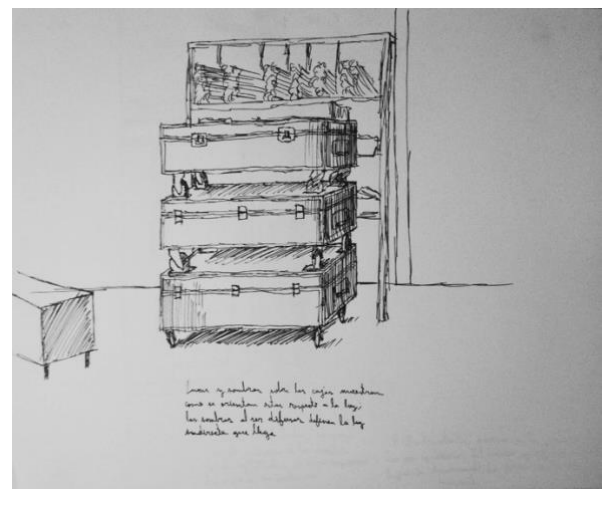 y sombras sobre las cajas muestran
como se orientan estas respecto a la luz,
las sombras al ser difusas definen la luz
indirecta que llega